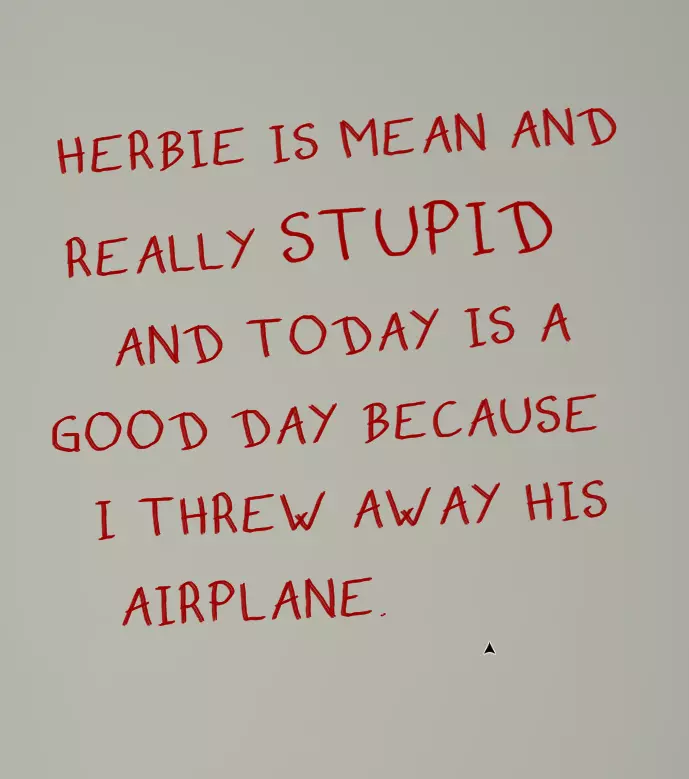 HERBIE IS MEAN AND
REALLY STUPID
AND TODAY IS A
GOOD DAY BECAUSE
I THREW AWAY HIS
AIRPLANE.